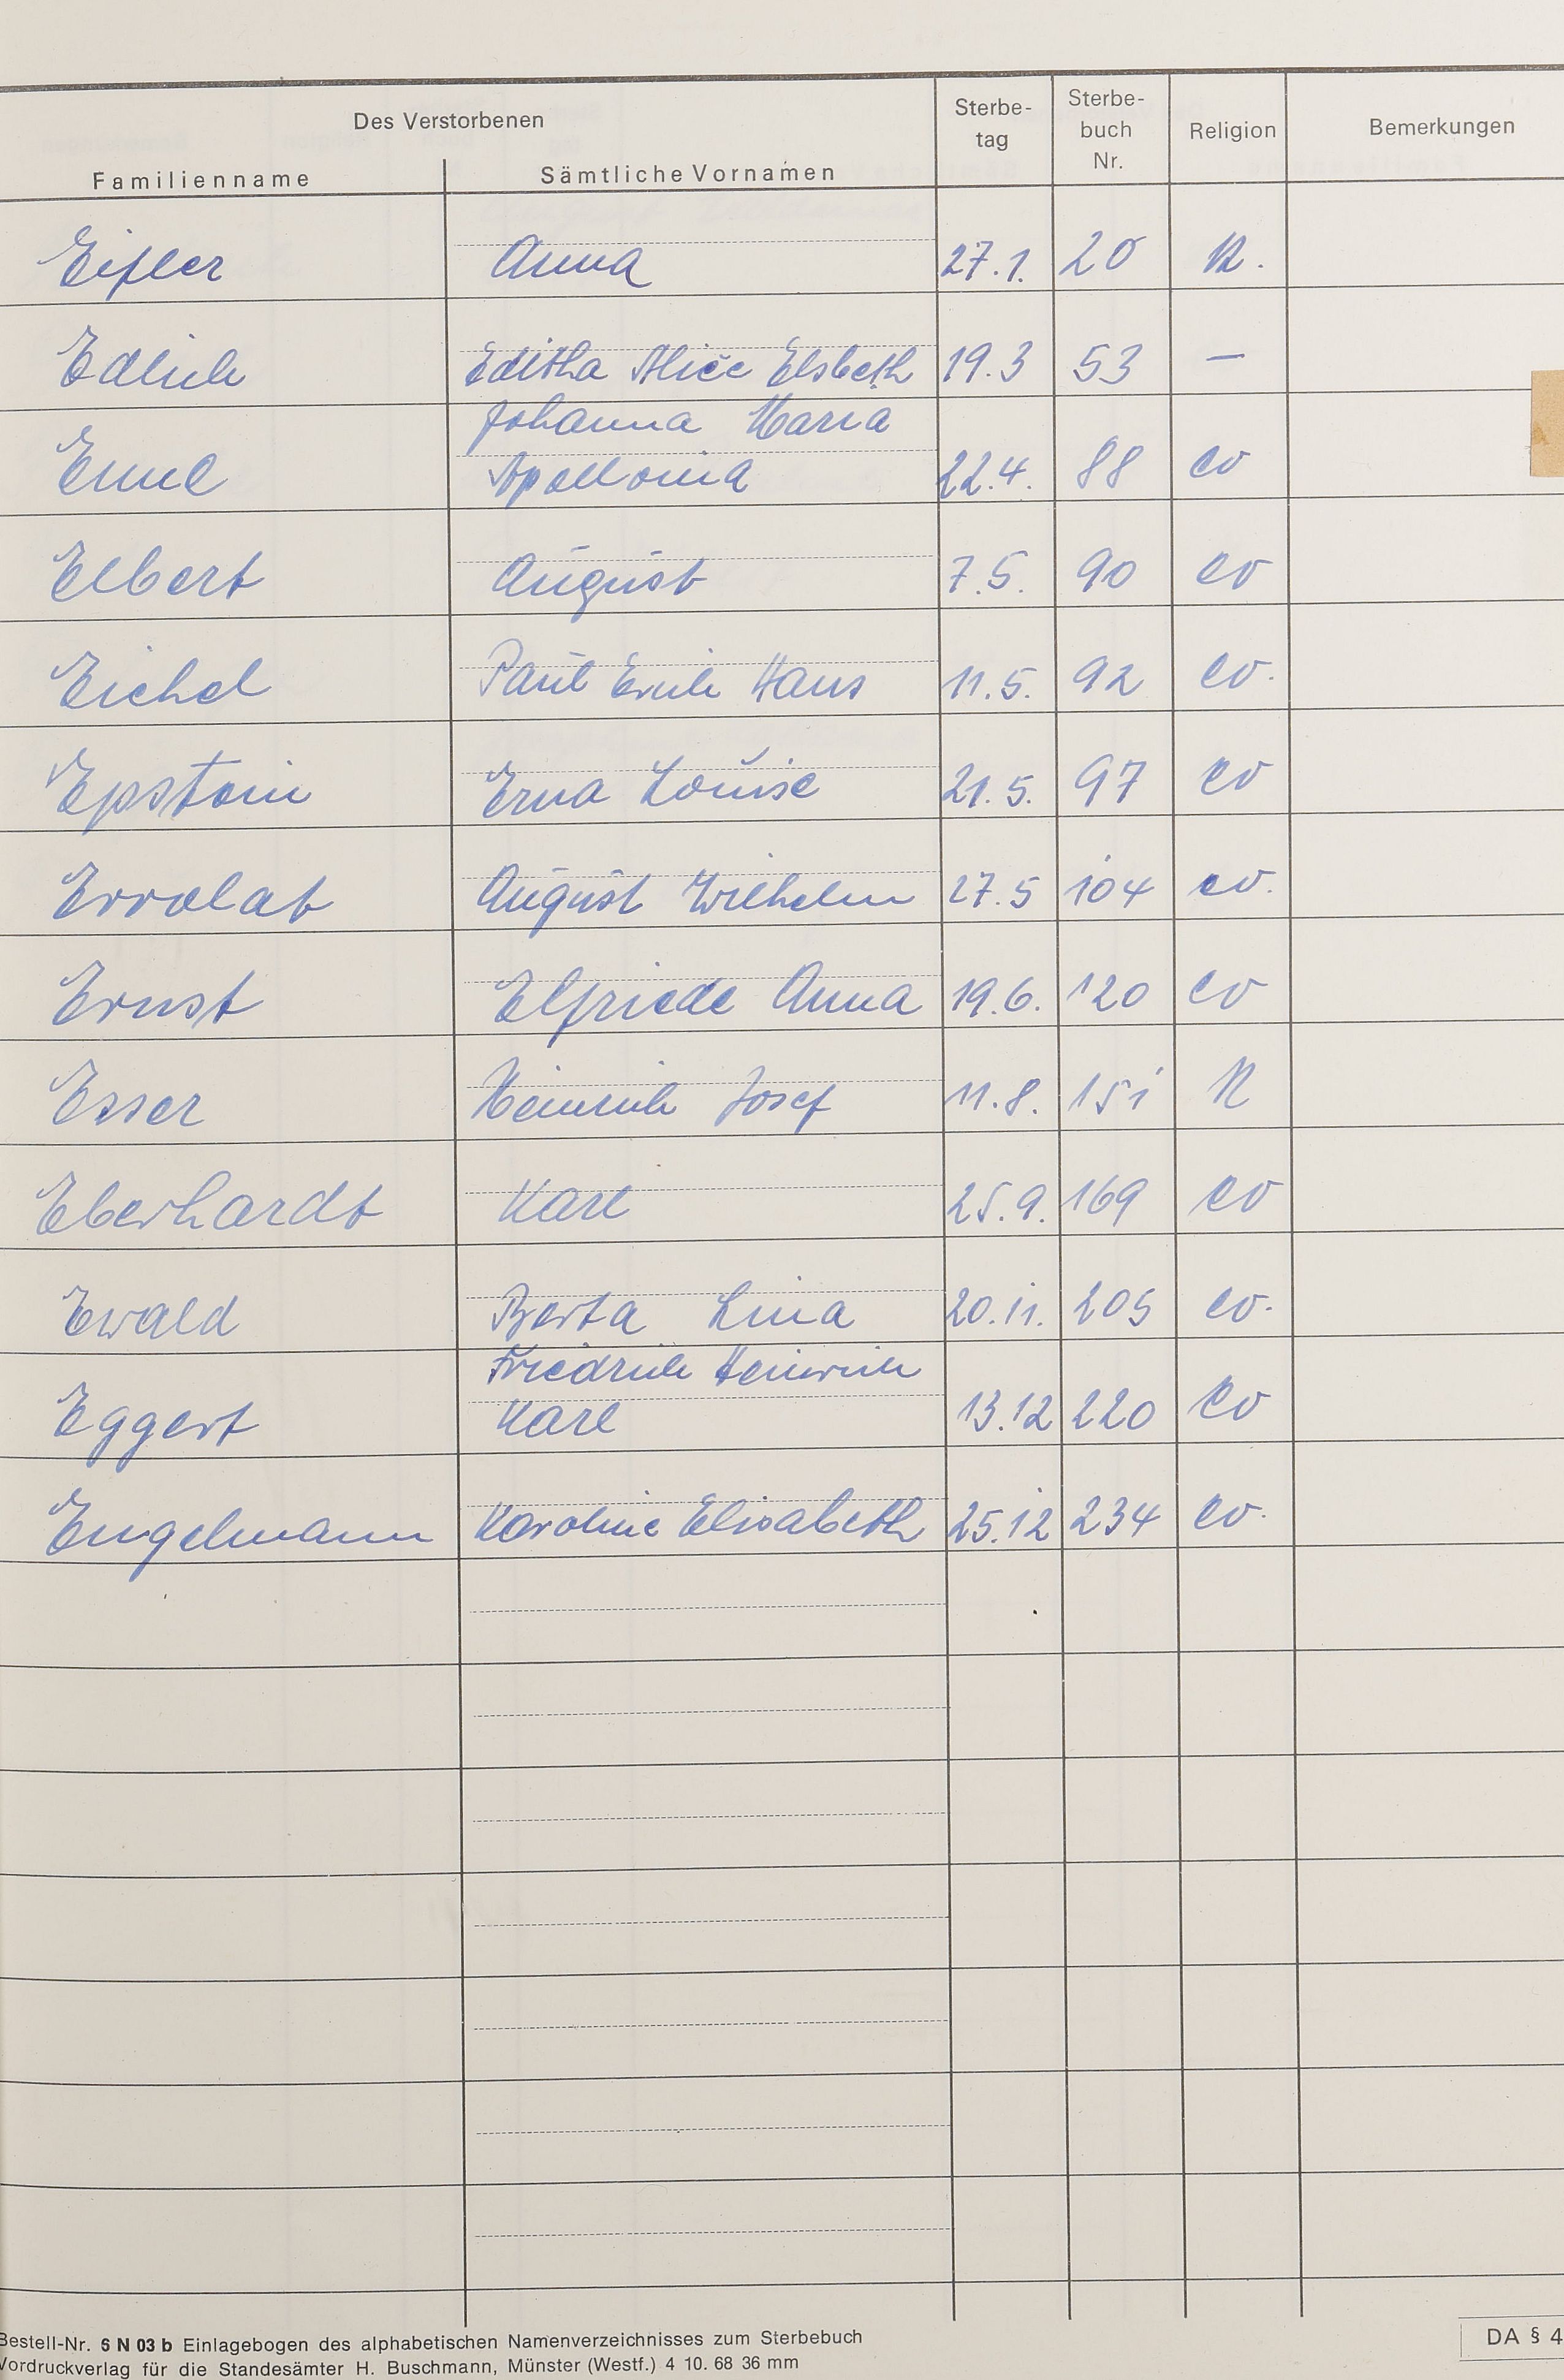 Des Verstorbenen
Familienname Sämtliche Vornamen Sterbe-tag Sterbe-buch Nr. Religion Bemerkungen
Eifler Anna 27.1. 20 K.
Edlich Editha Alice Elsbeth 19.3 53 —
Johanna Maria
Emul Apollonia 22.4. 88 ev
Elbert August 7.5. 90 ev
Eichel Paul Erich Hans 11.5. 92 ev.
Epstein Erna Louise 21.5. 97 ev
Errolat August Wilhelm 27.5 104 ev.
Ernst Elfriede Anna 19.6. 120 ev
Esser Heinrich Josef 11.8. 151 K
Eberhardt Karl 25.9. 169 ev
Ewald Berta Lina 20.11. 205 ev.
Friedrich Heinrich
Eggert Karl 13.12 220 ev
Engelmann Karoline Elisabeth 25.12 234 ev.
Bestell-Nr. 6 N 03 b Einlagebogen des alphabetischen Namenverzeichnisses zum Sterbebuch
Vordruckverlag für die Standesämter H. Buschmann, Münster (Westf.) 4 10. 68 36 mm
DA § 4